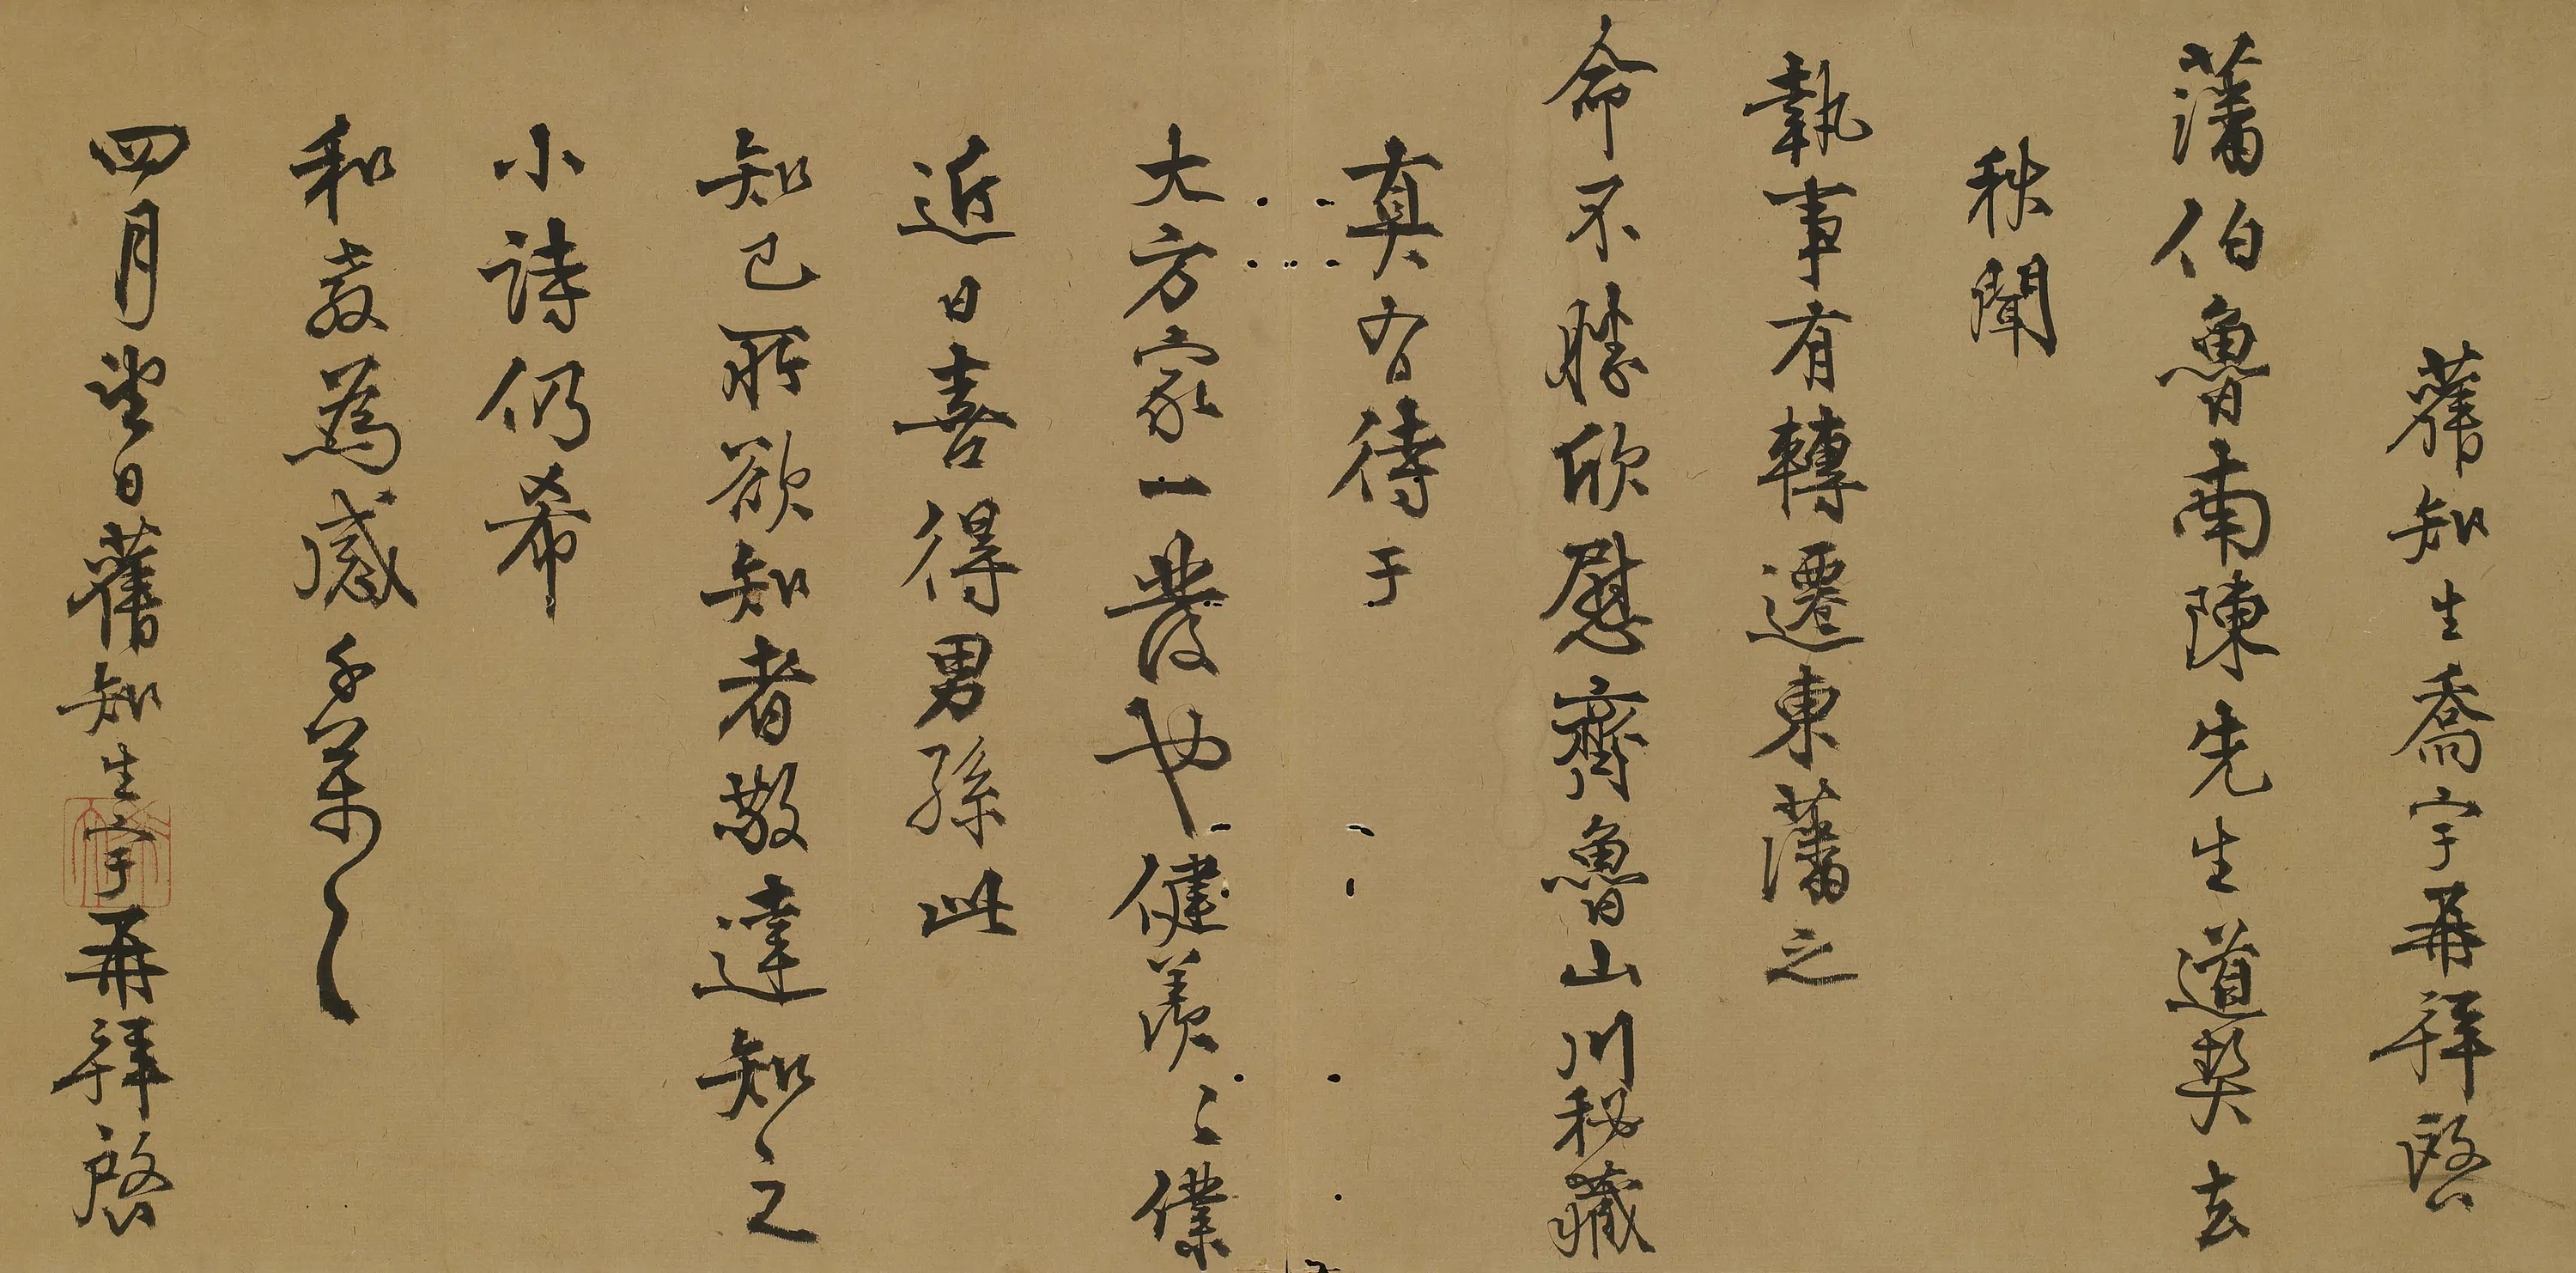 舊知生喬宇再拜啓
藩伯魯南陳先生道契去
秋聞
執事有轉遷東藩之
命不勝欣慰齊魯山川秘藏
真有待于
大方家一發也健羨〻僕
近日喜得男孫此
知已所欲知者敬達知〻之
小詩仍希
和教為感千萬〻
四月望日舊知生宇再拜啓